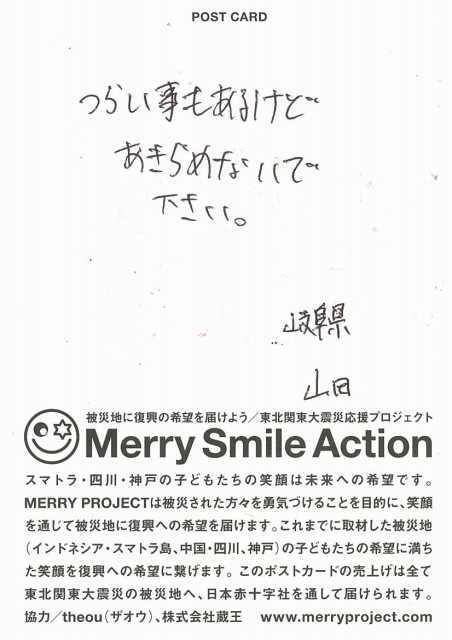 POST CARD
つらい事もあるけど
あきらめないで
下さい。
岐阜県
山田
被災地に復興の希望を届けよう／東北関東大震災応援プロジェクト
Merry Smile Action
スマトラ・四川・神戸の子どもたちの笑顔は未来への希望です。
MERRY PROJECTは被災された方々を勇気づけることを目的に、笑顔
を通じて被災地に復興への希望を届けます。これまでに取材した被災地
（インドネシア・スマトラ島、中国・四川、神戸）の子どもたちの希望に満ち
た笑顔を復興への希望に繋げます。このポストカードの売上げは全て
東北関東大震災の被災地へ、日本赤十字社を通して届けられます。
協力／theou（ザオウ）、株式会社蔵王　www.merryproject.com